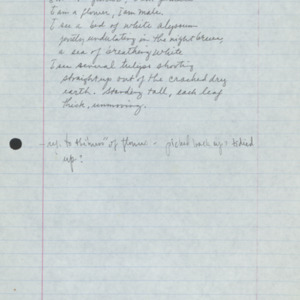 I am a flower, I am male.
I am a bed of white alyssum
gently undulating in the night breeze,
a sea of breathing white
I am several tulips shooting
straight up out of the cracked dry
earth. Standing tall, each leaf
thick, unmoving.
to of flower - picked back up?
up?